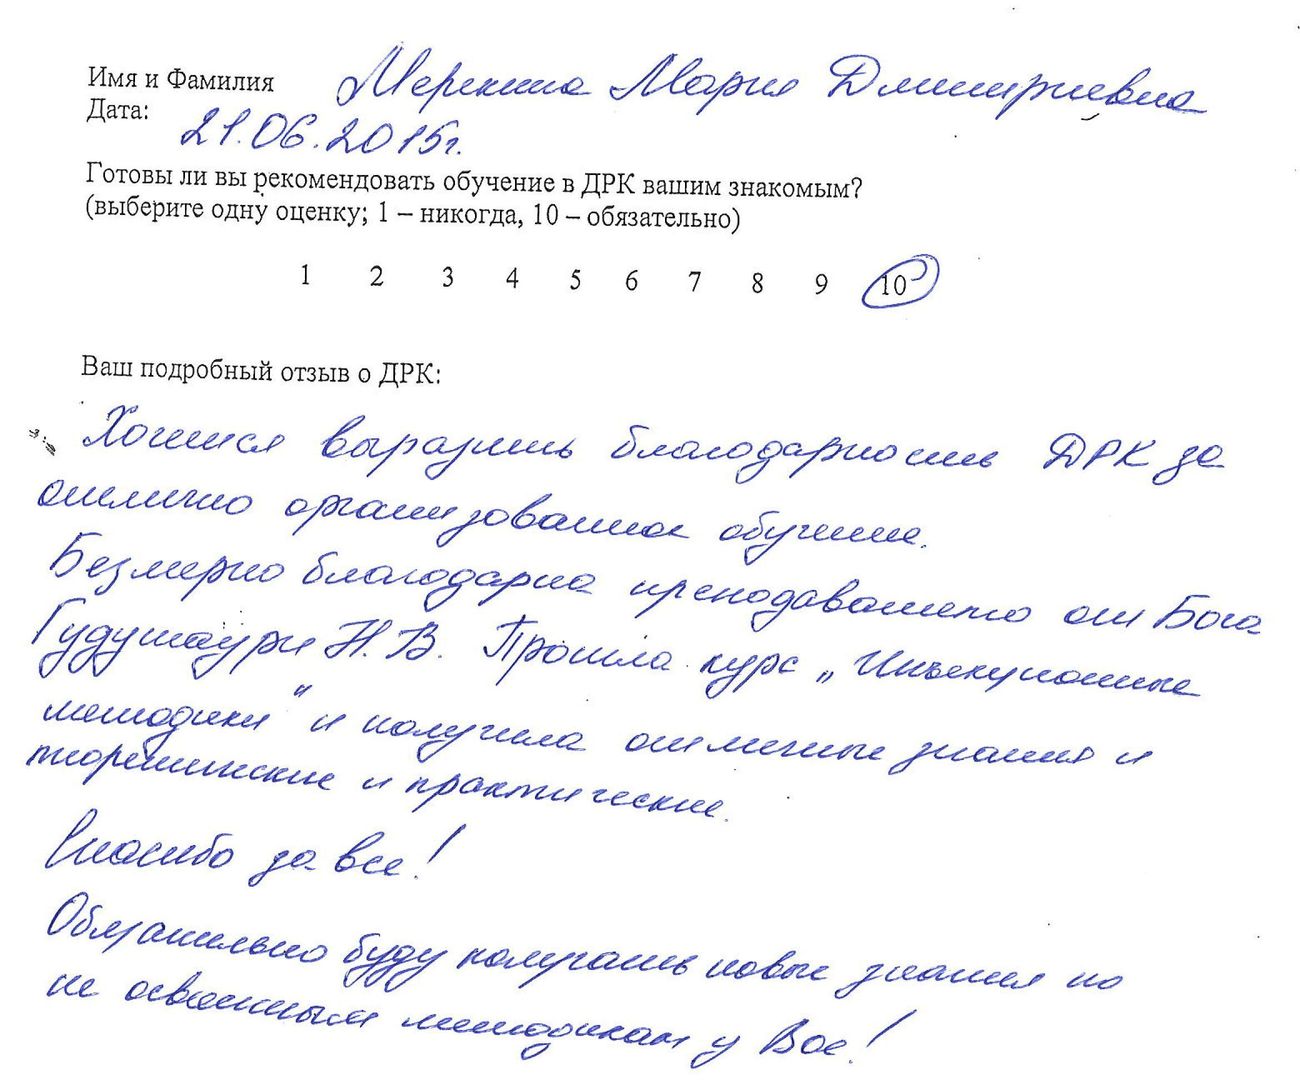 Имя и Фамилия Мерекина Мария Дмитриевна
Дата: 21.06.2015г.
Готовы ли вы рекомендовать обучение в ДРК вашим знакомым?
(выберите одну оценку; 1 – никогда, 10 – обязательно)
1 2 3 4 5 6 7 8 9 10
Ваш подробный отзыв о ДРК:
Хочется выразить благодарность ДРК за
отлично организованное обучение.
Безмерно благодарна преподавателю от Бога
Гудушаури Н.В. Прошла курс „Инъекционные
методики" и получила отличные знания и
теоретические и практические.
Спасибо за все!
Обязательно буду получать новые знания по
не освоенным методикам у Вас!